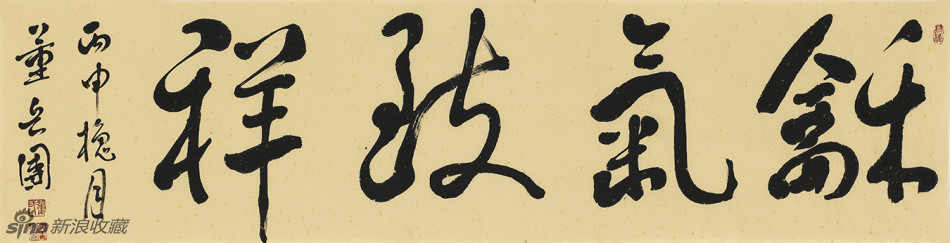 龢氣致祥
丙申槐月
董岳圃
sina 新浪收藏